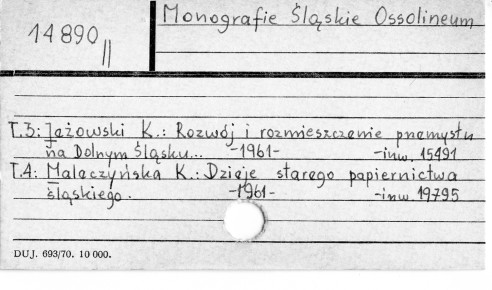 14890
II
Monografie Śląskie Ossolineum
T.3: Jeżowski K.: Rozwój i rozmieszczenie przemysłu
na Dolnym Śląsku... -1961- -inw. 15491
T.4: Maleczyńska K.: Dzieje starego papiernictwa
śląskiego. -1961- -inw. 19795
DUJ. 693/70. 10 000.